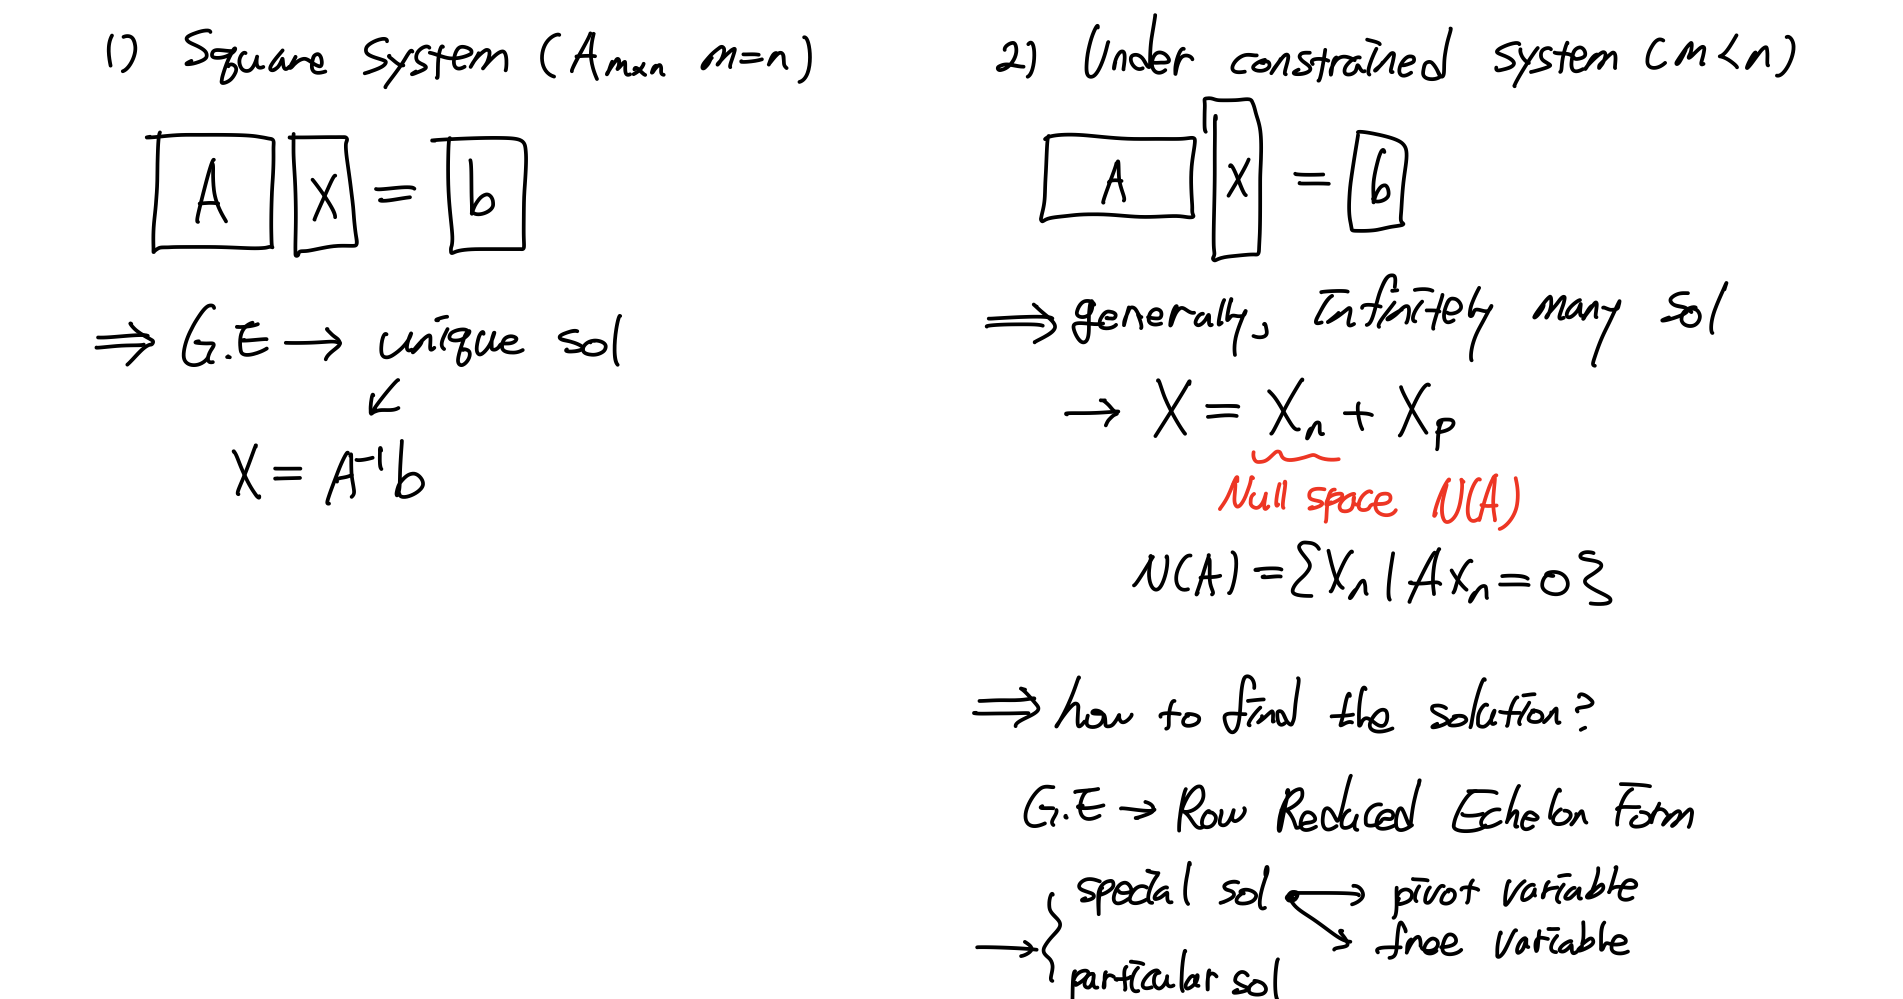 1) Square System (Amxn m=n)
A x = b
⇒ G.E → unique sol
↙
X = A⁻¹b
2) Under constrained system (m<n)
A x = b
⇒ generally, Infinitely many sol
→ X = Xn + Xp
Null space N(A)
N(A) = {Xn | AXn = 0}
⇒ how to find the solution?
G.E → Row Reduced Echelon Form
→ { special sol → pivot variable
→ free variable
particular sol